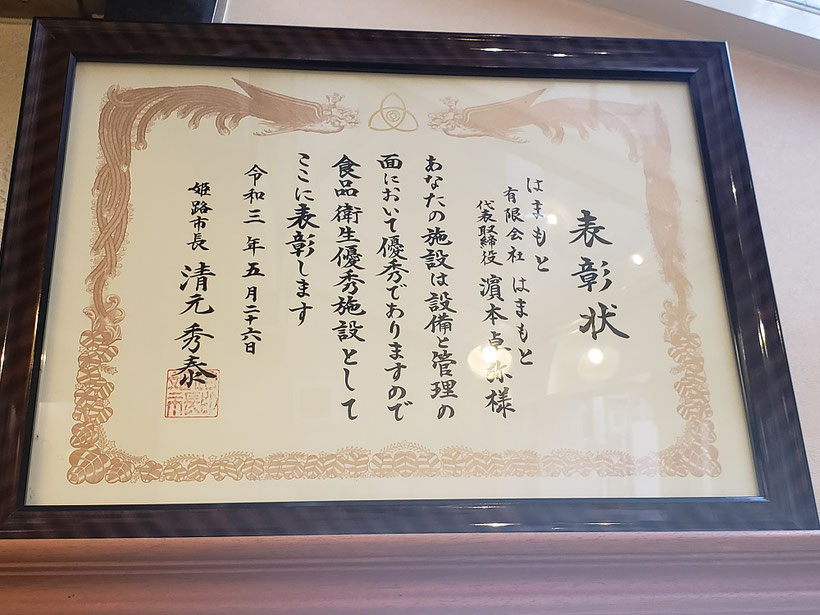 表彰状
はまもと
有限会社 はまもと
代表取締役 濵本卓弥様
あなたの施設は設備と管理の
面において優秀でありますので
食品衛生優秀施設として
ここに表彰します
令和三年五月二十六日
姫路市長 清元秀泰